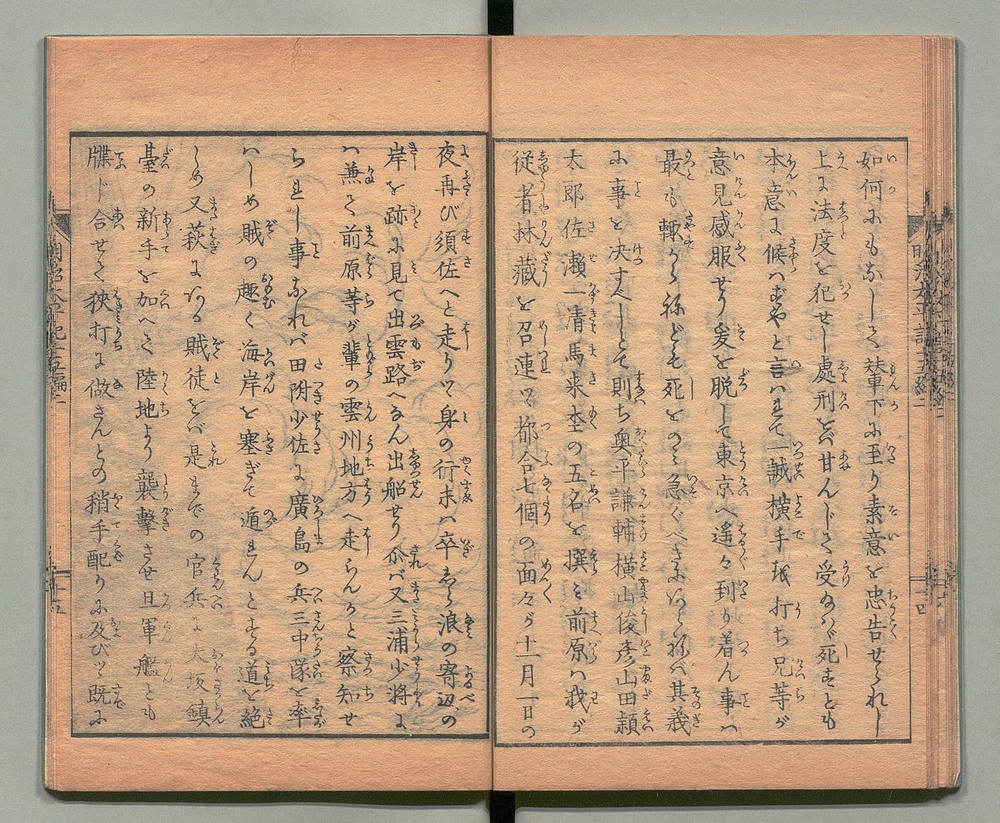 如何にもなして輦下に至り素意を忠告せられし
上は法度を犯せし處刑をバ甘んじて受なバ死すとも
本意に候はずやと言ハれて一誠横手を打ち兄等が
意見感服せり爰を脱して東京へ遙々到り着ん事ハ
最も輙からねども死をのミ急ぐべきにあらねバ其義
に事を決すべしとて則ち奥平謙輔横山俊彦山田頴
太郎佐瀬一清馬来杢の五名を撰ミ前原ハ我が
従者林藏を召連ツ都合七個の面々が十一月一日の
夜再び須佐へと走りツ身の行末ハ卒しら浪の寄辺の
岸を跡に見て出雲路へなん出船せり尒バ又三浦少将に
ハ兼て前原等が輩の雲州地方へ走らんかと察知せ
られし事なれバ田附少佐に廣島の兵三中隊を率
ハしめ賊の趣く海岸を塞ぎて遁れんとする道を絶
しめ又萩にある賊徒をバ是までの官兵に大坂鎮
臺の新手を加へて陸地より襲撃させ且軍艦とも
牒じ合せて狹打に做さんとの稍手配りに及びツ既に